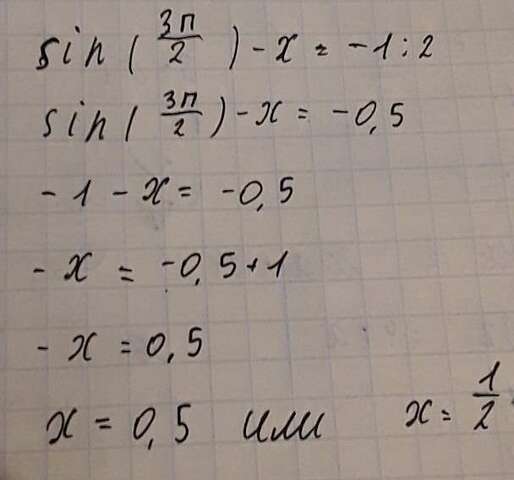 sin(3π/2) - x = -1:2
sin(3π/2) - x = -0,5
-1 - x = -0,5
-x = -0,5+1
-x = 0,5
x = 0,5 или x = 1/2